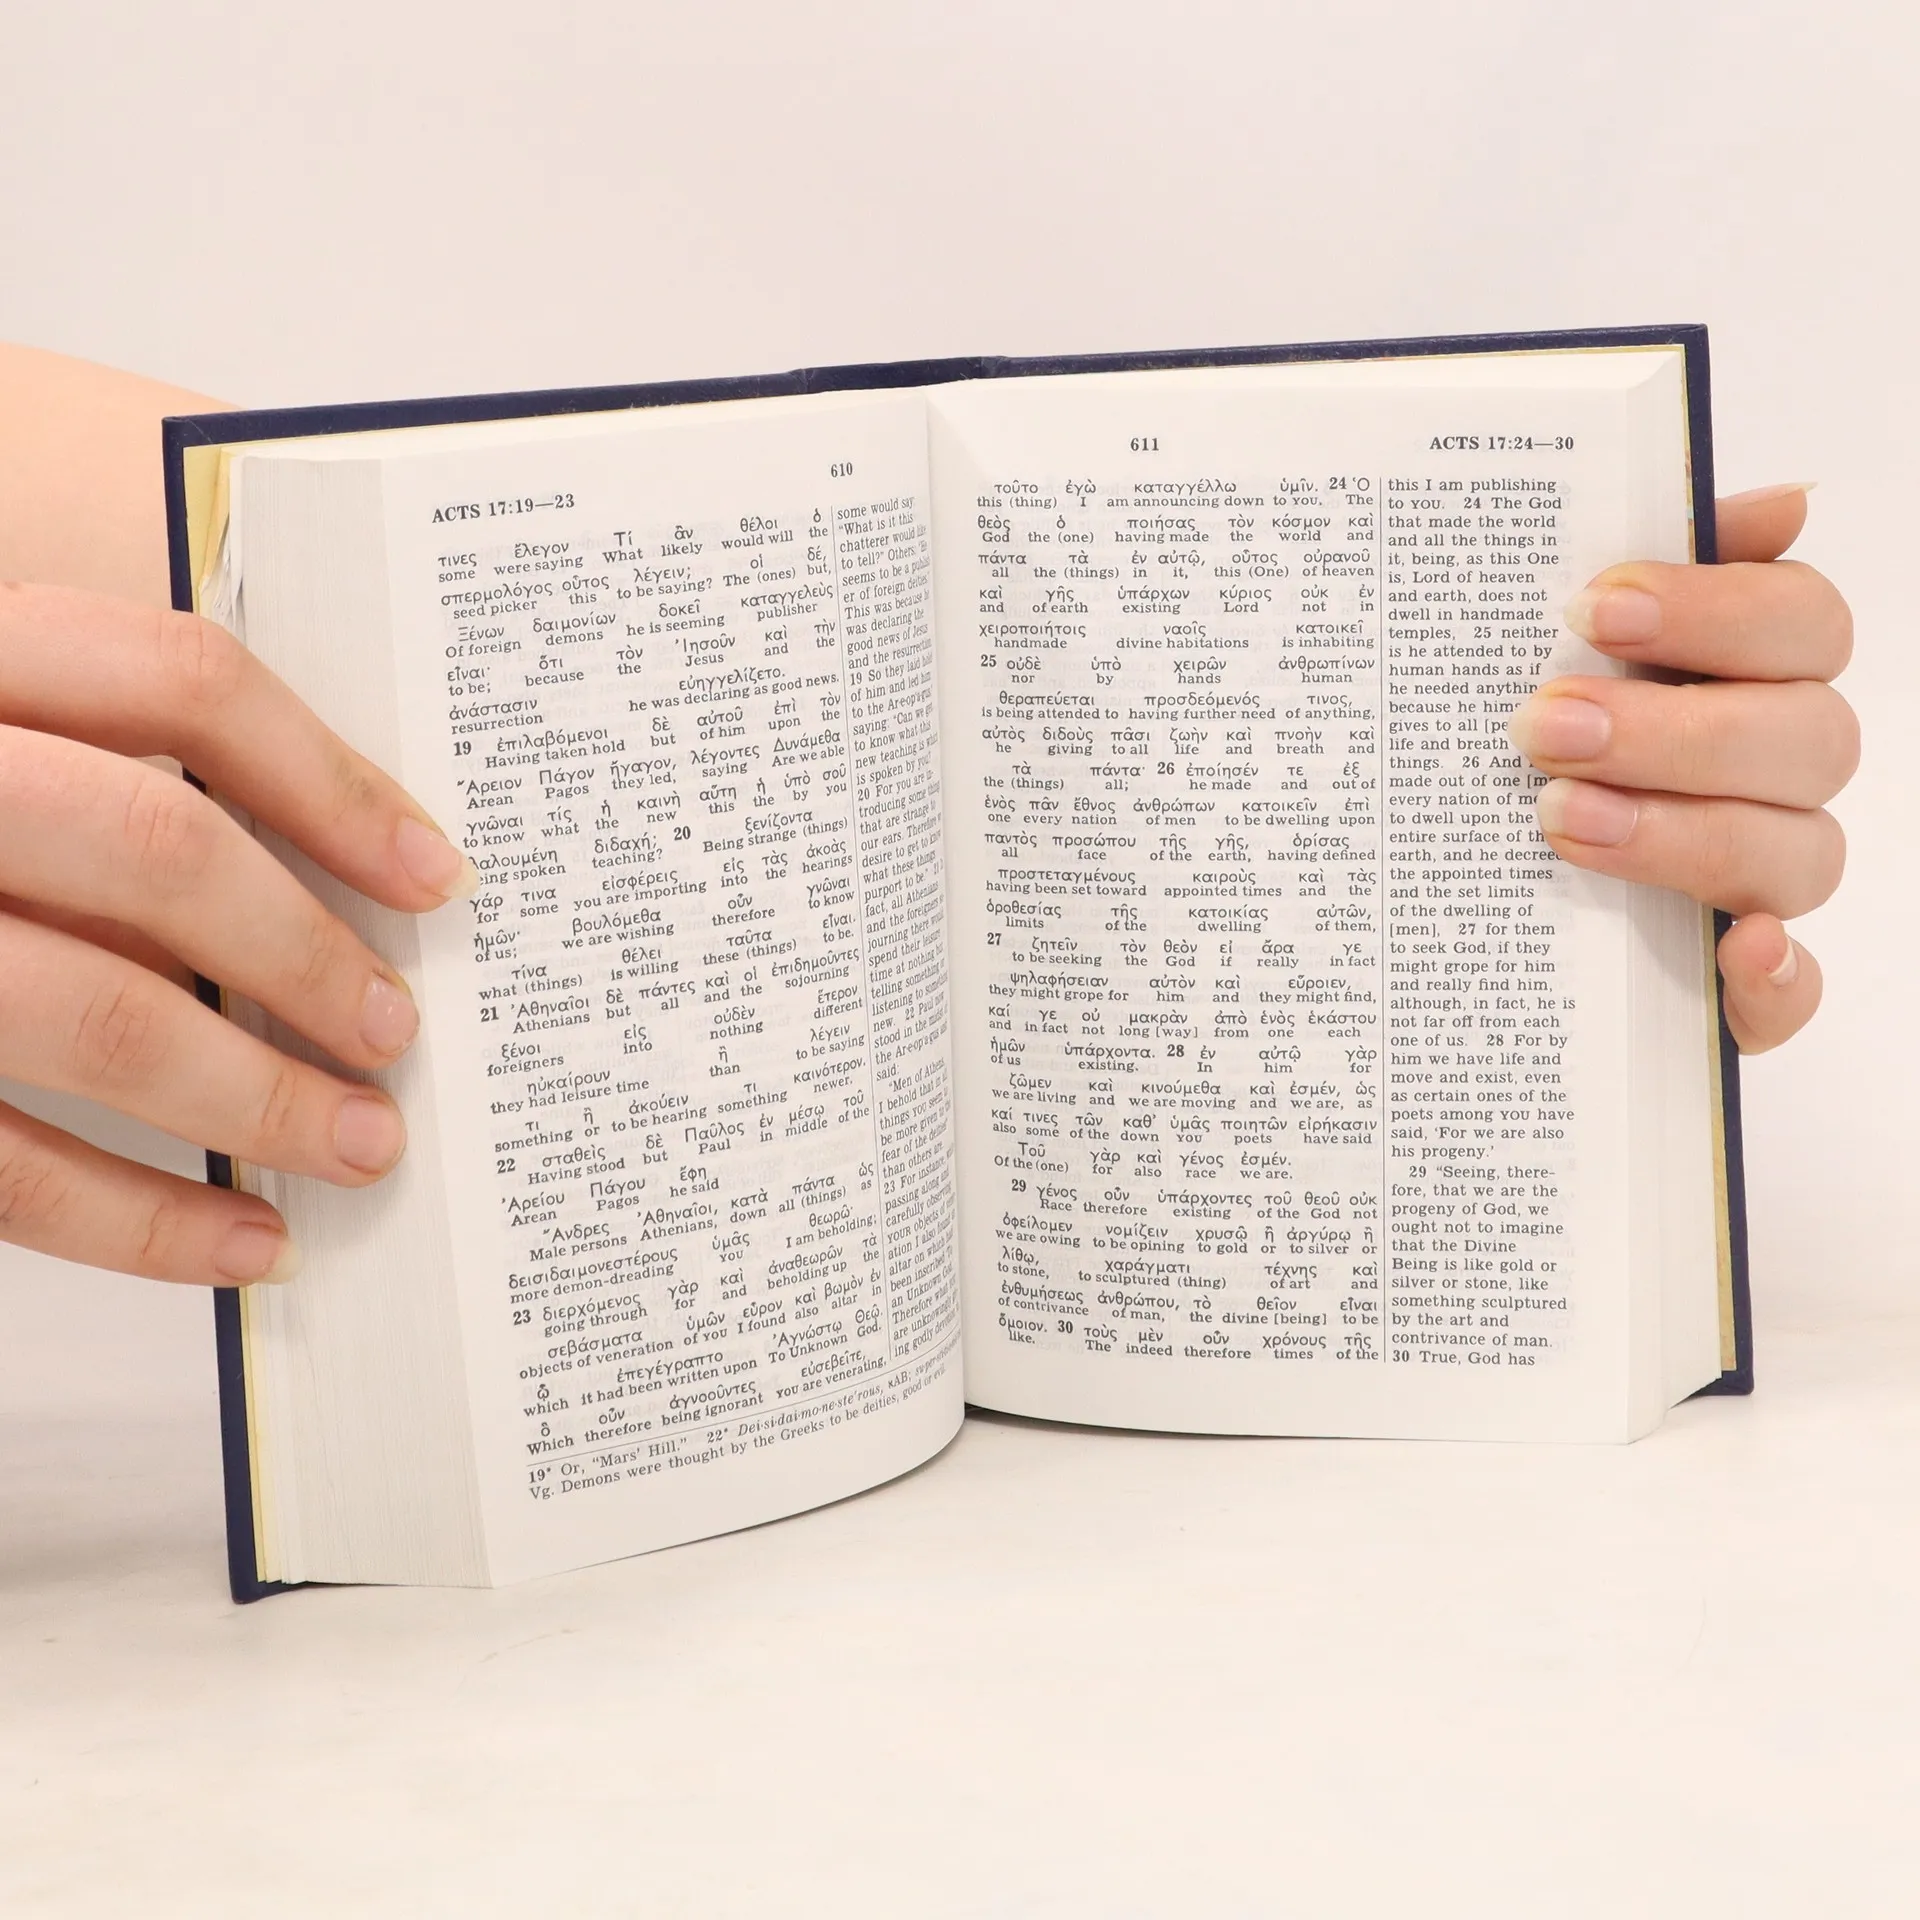 610
ACTS 17:19—23
τινες ἔλεγον Τί ἂν θέλοι ὁ
some were saying What likely would will the
σπερμολόγος οὗτος λέγειν; οἱ δέ,
seed picker this to be saying? The (ones) but,
Ξένων δαιμονίων δοκεῖ καταγγελεὺς
Of foreign demons he is seeming publisher
εἶναι· ὅτι τὸν Ἰησοῦν καὶ τὴν
to be; because the Jesus and the
ἀνάστασιν εὐηγγελίζετο.
resurrection he was declaring as good news.
19 ἐπιλαβόμενοι δὲ αὐτοῦ ἐπὶ τὸν
Having taken hold but of him upon the
Ἄρειον Πάγον ἤγαγον, λέγοντες Δυνάμεθα
Arean Pagos they led, saying Are we able
γνῶναι τίς ἡ καινὴ αὕτη ἡ ὑπὸ σοῦ
to know what the new this the by you
λαλουμένη διδαχή; 20 ξενίζοντα
being spoken teaching? Being strange (things)
γάρ τινα εἰσφέρεις εἰς τὰς ἀκοὰς
for some you are importing into the hearings
ἡμῶν· βουλόμεθα οὖν γνῶναι
of us; we are wishing therefore to know
τίνα θέλει ταῦτα εἶναι.
what (things) is willing these (things) to be.
21 Ἀθηναῖοι δὲ πάντες καὶ οἱ ἐπιδημοῦντες
Athenians but all and the sojourning
ξένοι εἰς οὐδὲν ἕτερον
foreigners into nothing different
ηὐκαίρουν ἢ λέγειν
they had leisure time than to be saying
τι ἢ ἀκούειν τι καινότερον.
something or to be hearing something newer.
22 σταθεὶς δὲ Παῦλος ἐν μέσῳ τοῦ
Having stood but Paul in middle of the
Ἀρείου Πάγου ἔφη
Arean Pagos he said
Ἄνδρες Ἀθηναῖοι, κατὰ πάντα ὡς
Male persons Athenians, down all (things) as
δεισιδαιμονεστέρους ὑμᾶς θεωρῶ·
more demon-dreading you I am beholding;
23 διερχόμενος γὰρ καὶ ἀναθεωρῶν τὰ
going through for and beholding up the
σεβάσματα ὑμῶν εὗρον καὶ βωμὸν ἐν
objects of veneration of YOU I found also altar in
ᾧ ἐπεγέγραπτο Ἀγνώστῳ Θεῷ.
which it had been written upon To Unknown God.
ὃ οὖν ἀγνοοῦντες εὐσεβεῖτε,
Which therefore being ignorant YOU are venerating,
some would say:
"What is it this
chatterer would like
to tell?" Others:
seems to be a
er of foreign deities"
This was because he
was declaring the
good news of Jesus
and the resurrection
19 So they laid hold
of him and led him
to the Ar·e·op′a·gus,
saying: "Can we get
to know what this
new teaching is which
is spoken by you?
20 For you are in-
troducing some things
that are strange to
our ears. Therefore we
desire to get to know
what these things
purport to be."
fact, all Athenians
and the foreigners so-
journing there would
spend their leisure
time at nothing but
telling something or
listening to something
new. 22 Paul now
stood in the midst of
the Ar·e·op′a·gus and
said:
"Men of Athens,
I behold that in all
things you seem to
be more given to the
fear of the deities
than others are.
23 For instance,
passing along and
carefully observing
YOUR objects of
ation I also found
altar on which had
been inscribed 'To
an Unknown God.'
Therefore what
are unknowingly
ing godly devotion
19* Or, "Mars' Hill." 22* Dei·si·dai·mo·ne·ste′rous, אAB;
Vg. Demons were thought by the Greeks to be deities, good or evil.
611 ACTS 17:24—30
τοῦτο ἐγὼ καταγγέλλω ὑμῖν. 24 Ὁ
this (thing) I am announcing down to you. The
θεὸς ὁ ποιήσας τὸν κόσμον καὶ
God the (one) having made the world and
πάντα τὰ ἐν αὐτῷ, οὗτος οὐρανοῦ
all the (things) in it, this (One) of heaven
καὶ γῆς ὑπάρχων κύριος οὐκ ἐν
and of earth existing Lord not in
χειροποιήτοις ναοῖς κατοικεῖ
handmade divine habitations is inhabiting
25 οὐδὲ ὑπὸ χειρῶν ἀνθρωπίνων
nor by hands human
θεραπεύεται προσδεόμενός τινος,
is being attended to having further need of anything,
αὐτὸς διδοὺς πᾶσι ζωὴν καὶ πνοὴν καὶ
he giving to all life and breath and
τὰ πάντα· 26 ἐποίησέν τε ἐξ
the (things) all; he made and out of
ἑνὸς πᾶν ἔθνος ἀνθρώπων κατοικεῖν ἐπὶ
one every nation of men to be dwelling upon
παντὸς προσώπου τῆς γῆς, ὁρίσας
all face of the earth, having defined
προστεταγμένους καιροὺς καὶ τὰς
having been set toward appointed times and the
ὁροθεσίας τῆς κατοικίας αὐτῶν,
limits of the dwelling of them,
27 ζητεῖν τὸν θεὸν εἰ ἄρα γε
to be seeking the God if really in fact
ψηλαφήσειαν αὐτὸν καὶ εὕροιεν,
they might grope for him and they might find,
καί γε οὐ μακρὰν ἀπὸ ἑνὸς ἑκάστου
and in fact not long [way] from one each
ἡμῶν ὑπάρχοντα. 28 ἐν αὐτῷ γὰρ
of us existing. In him for
ζῶμεν καὶ κινούμεθα καὶ ἐσμέν, ὡς
we are living and we are moving and we are, as
καί τινες τῶν καθ' ὑμᾶς ποιητῶν εἰρήκασιν
also some of the down YOU poets have said
Τοῦ γὰρ καὶ γένος ἐσμέν.
Of the (one) for also race we are.
29 γένος οὖν ὑπάρχοντες τοῦ θεοῦ οὐκ
Race therefore existing of the God not
ὀφείλομεν νομίζειν χρυσῷ ἢ ἀργύρῳ ἢ
we are owing to be opining to gold or to silver or
λίθῳ, χαράγματι τέχνης καὶ
to stone, to sculptured (thing) of art and
ἐνθυμήσεως ἀνθρώπου, τὸ θεῖον εἶναι
of contrivance of man, the divine [being] to be
ὅμοιον. 30 τοὺς μὲν οὖν χρόνους τῆς
like. The indeed therefore times of the
this I am publishing
to YOU. 24 The God
that made the world
and all the things in
it, being, as this One
is, Lord of heaven
and earth, does not
dwell in handmade
temples, 25 neither
is he attended to by
human hands as if
he needed
because he
gives to all
life and breath
things. 26 And
made out of one
every nation of
to dwell upon the
entire surface of
earth, and he decreed
the appointed times
and the set limits
of the dwelling of
[men], 27 for them
to seek God, if they
might grope for him
and really find him,
although, in fact, he is
not far off from each
one of us. 28 For by
him we have life and
move and exist, even
as certain ones of the
poets among YOU have
said, 'For we are also
his progeny.'
29 "Seeing, there-
fore, that we are the
progeny of God, we
ought not to imagine
that the Divine
Being is like gold or
silver or stone, like
something sculptured
by the art and
contrivance of man.
30 True, God has